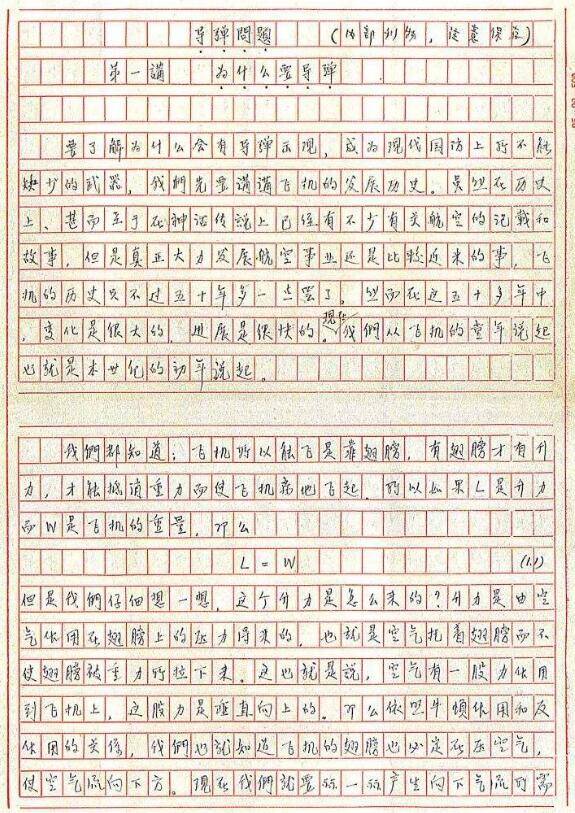 导弹问题 (内部刊物,注意保存)
第一讲 为什么要导弹
要了解为什么会有导弹出现,成为现代国防上所不能
缺少的武器,我們先要講講飞机的发展历史。虽然在历史
上、甚而至于在神话传说上已经有不少有关航空的记载和
故事,但是真正大力发展航空事业还是比较近来的事,飞
机的历史只不过五十年多一点罢了。然而在这五十多年中
,变化是很大的,进展是很快的。现在我們从飞机的童年说起
也就是本世纪的初年说起。
我們都知道:飞机所以能飞是靠翅膀,有翅膀才有升
力,才能抵消重力而使飞机离地飞起。所以如果L是升力
而W是飞机的重量,那么
L = W (1.1)
但是我們仔细想一想,这个升力是怎么来的?升力是由空
气作用在翅膀上的压力得来的,也就是空气托着翅膀而不
使翅膀被重力所拉下来。这也就是说,空气有一股力作用
到飞机上,这股力是垂直向上的。那么依照牛顿作用和反
作用的关係,我們也就知道飞机的翅膀也必定在压空气,
使空气流向下方。现在我們就要算一算产生向下气流所需